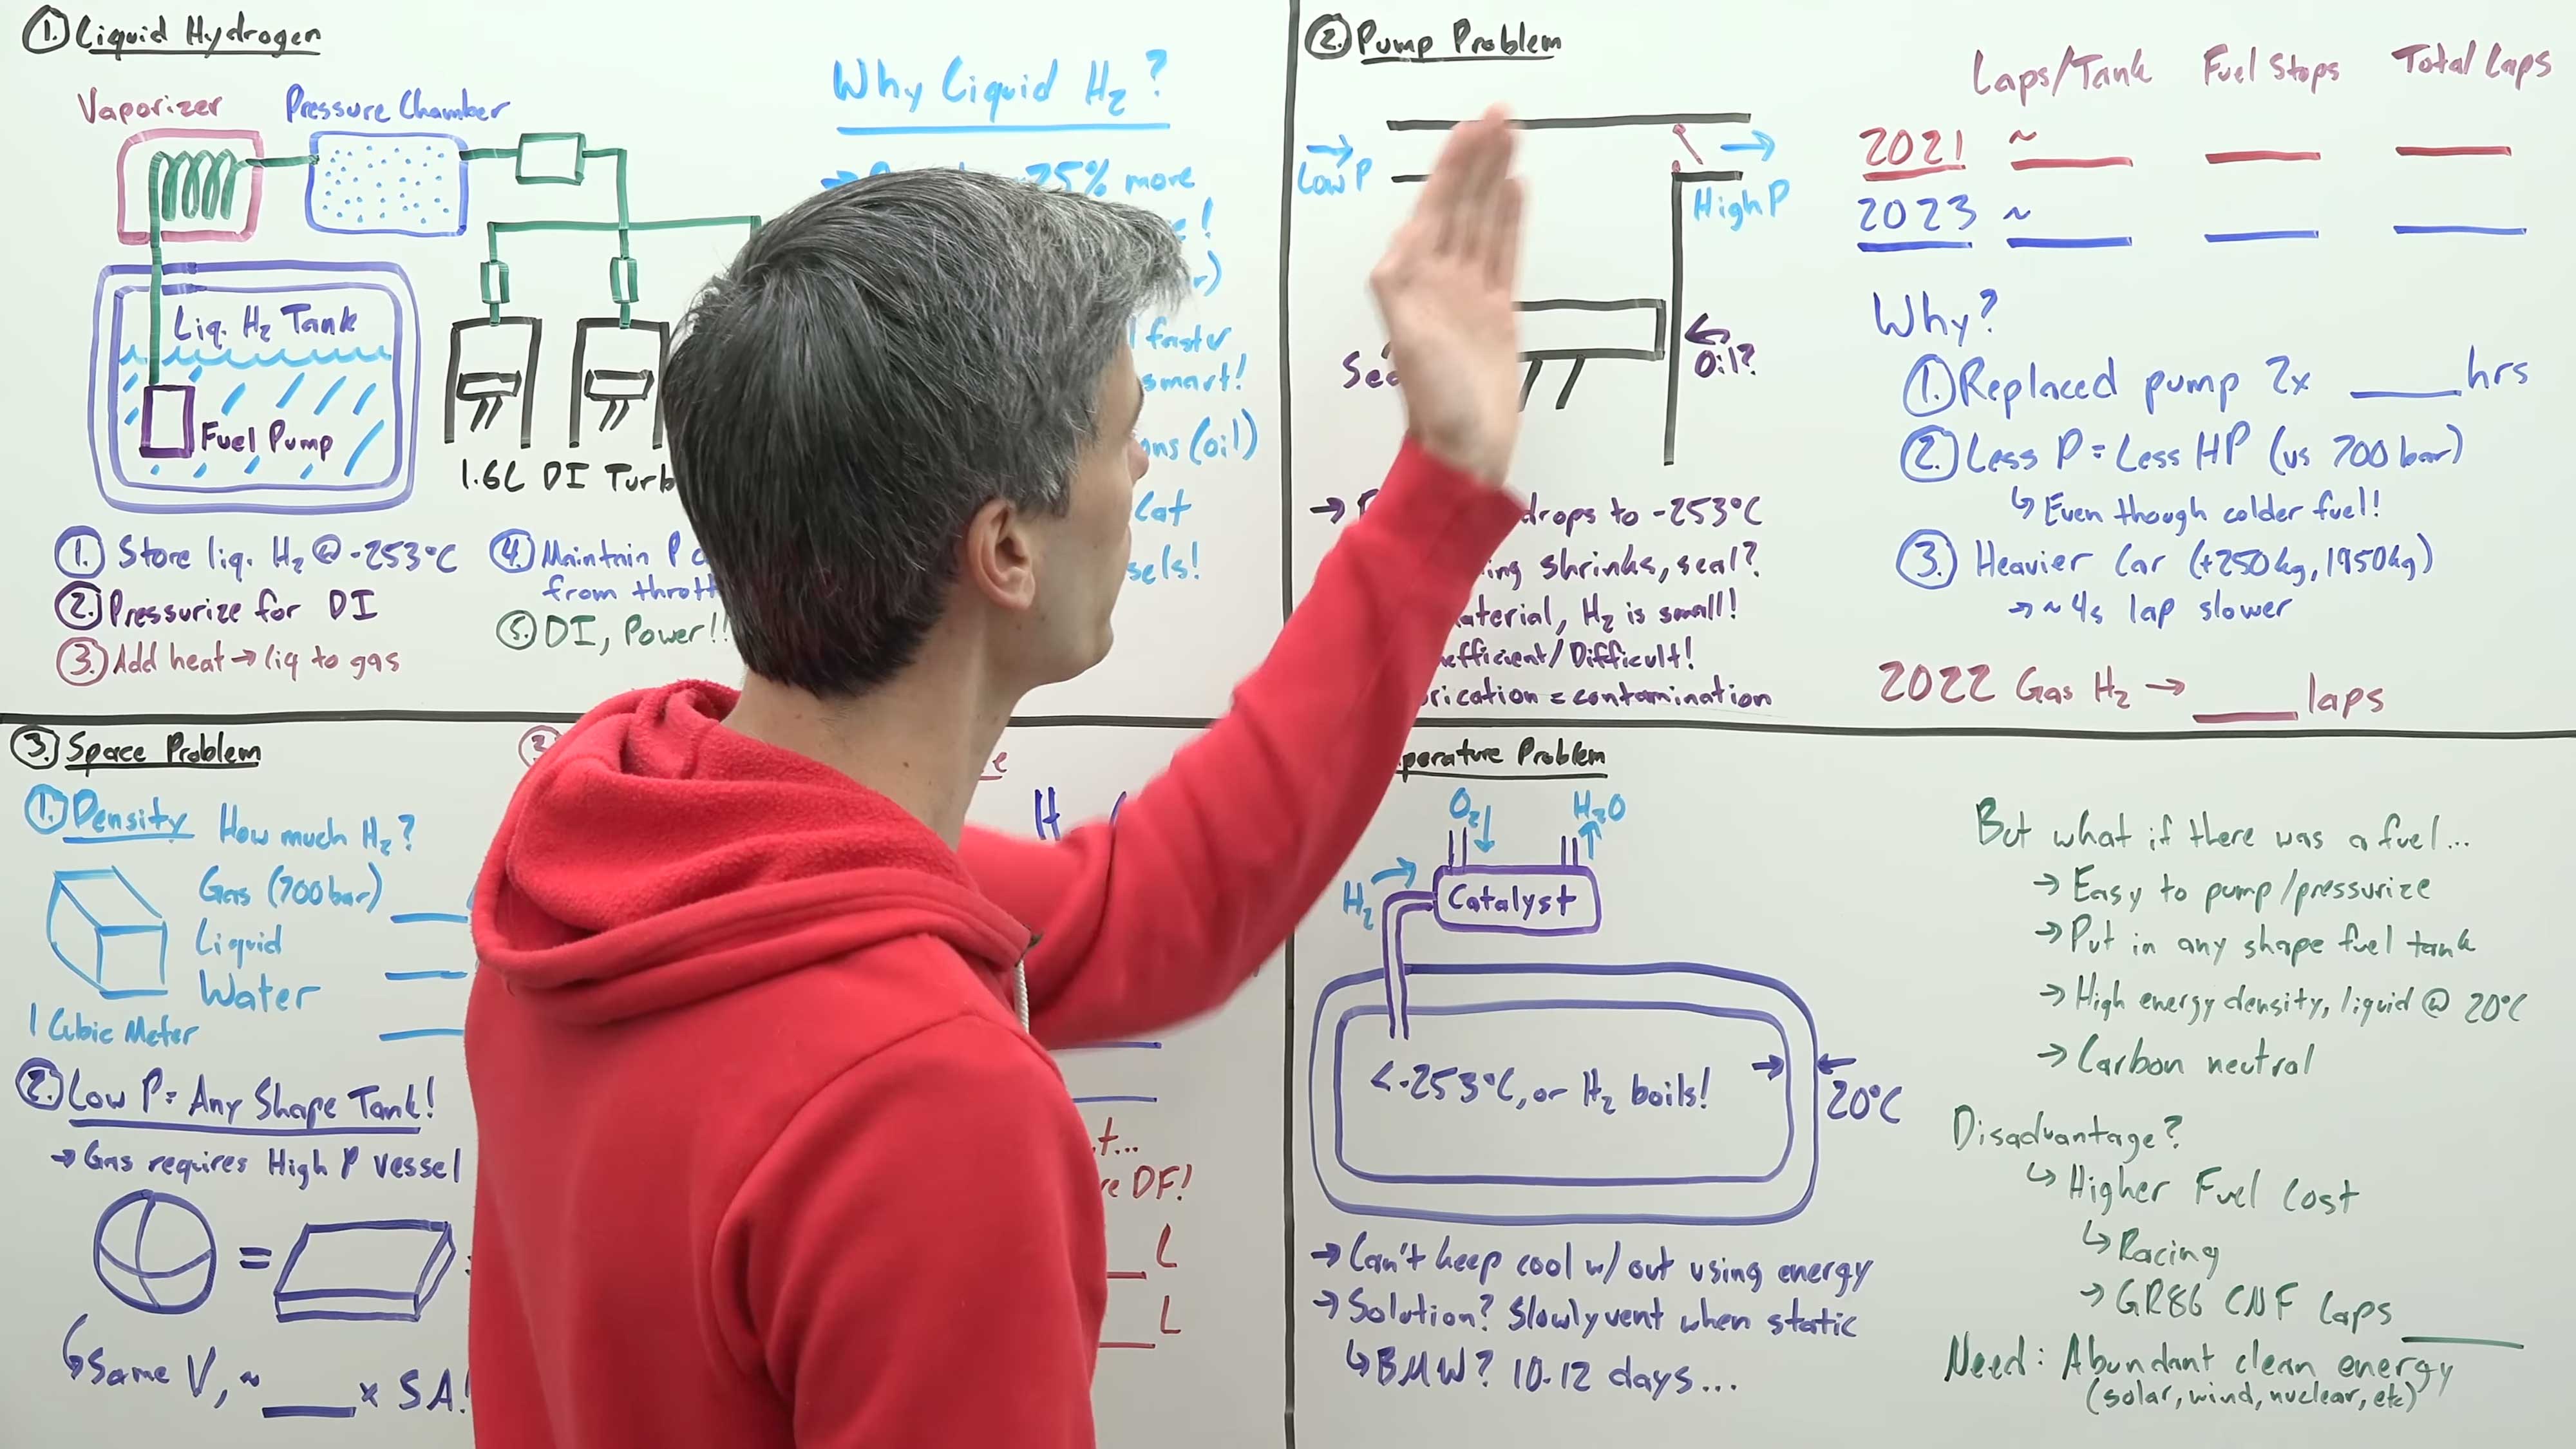 1. Liquid Hydrogen
Vaporizer
Pressure Chamber
Liq. H2 Tank
Fuel Pump
1.6L DI Turb
1. Store liq. H2 @ -253°C
2. Pressurize for DI
3. Add heat → liq to gas
4. Maintain P
from thrott
5. DI, Power!!
Why Liquid H2?
75% more
faster
smart!
(oil)
Cat
2. Pump Problem
Low P
High P
Oil?
drops to -253°C
shrinks, seal?
H2 is small!
Difficult!
= contamination
Laps/Tank Fuel Stops Total Laps
2021 ~ ___ ___ ___
2023 ~ ___ ___ ___
Why?
1. Replaced pump 2x ___ hrs
2. Less P = Less HP (vs 700 bar)
↳ Even though colder fuel!
3. Heavier Car (+250kg, 1950kg)
→ ~4s lap slower
2022 Gas H2 → ___ laps
3. Space Problem
1. Density How much H2?
Gas (700 bar) ___
Liquid ___
Water ___
1 Cubic Meter
2. Low P = Any Shape Tank!
→ Gas requires High P vessel
=
↳ Same V, ~ ___ x SA!
3.
H
DF!
___ L
___ L
perature Problem
O2 ↓
H2O ↑
H2 →
Catalyst
<-253°C, or H2 boils!
→ ← 20°C
→ Can't keep cool w/out using energy
→ Solution? Slowly vent when static
↳ BMW? 10-12 days...
But what if there was a fuel...
→ Easy to pump/pressurize
→ Put in any shape fuel tank
→ High energy density, liquid @ 20°C
→ Carbon neutral
Disadvantage?
↳ Higher Fuel Cost
↳ Racing
→ GR86 CNF Laps ___
Need: Abundant clean energy
(solar, wind, nuclear, etc)